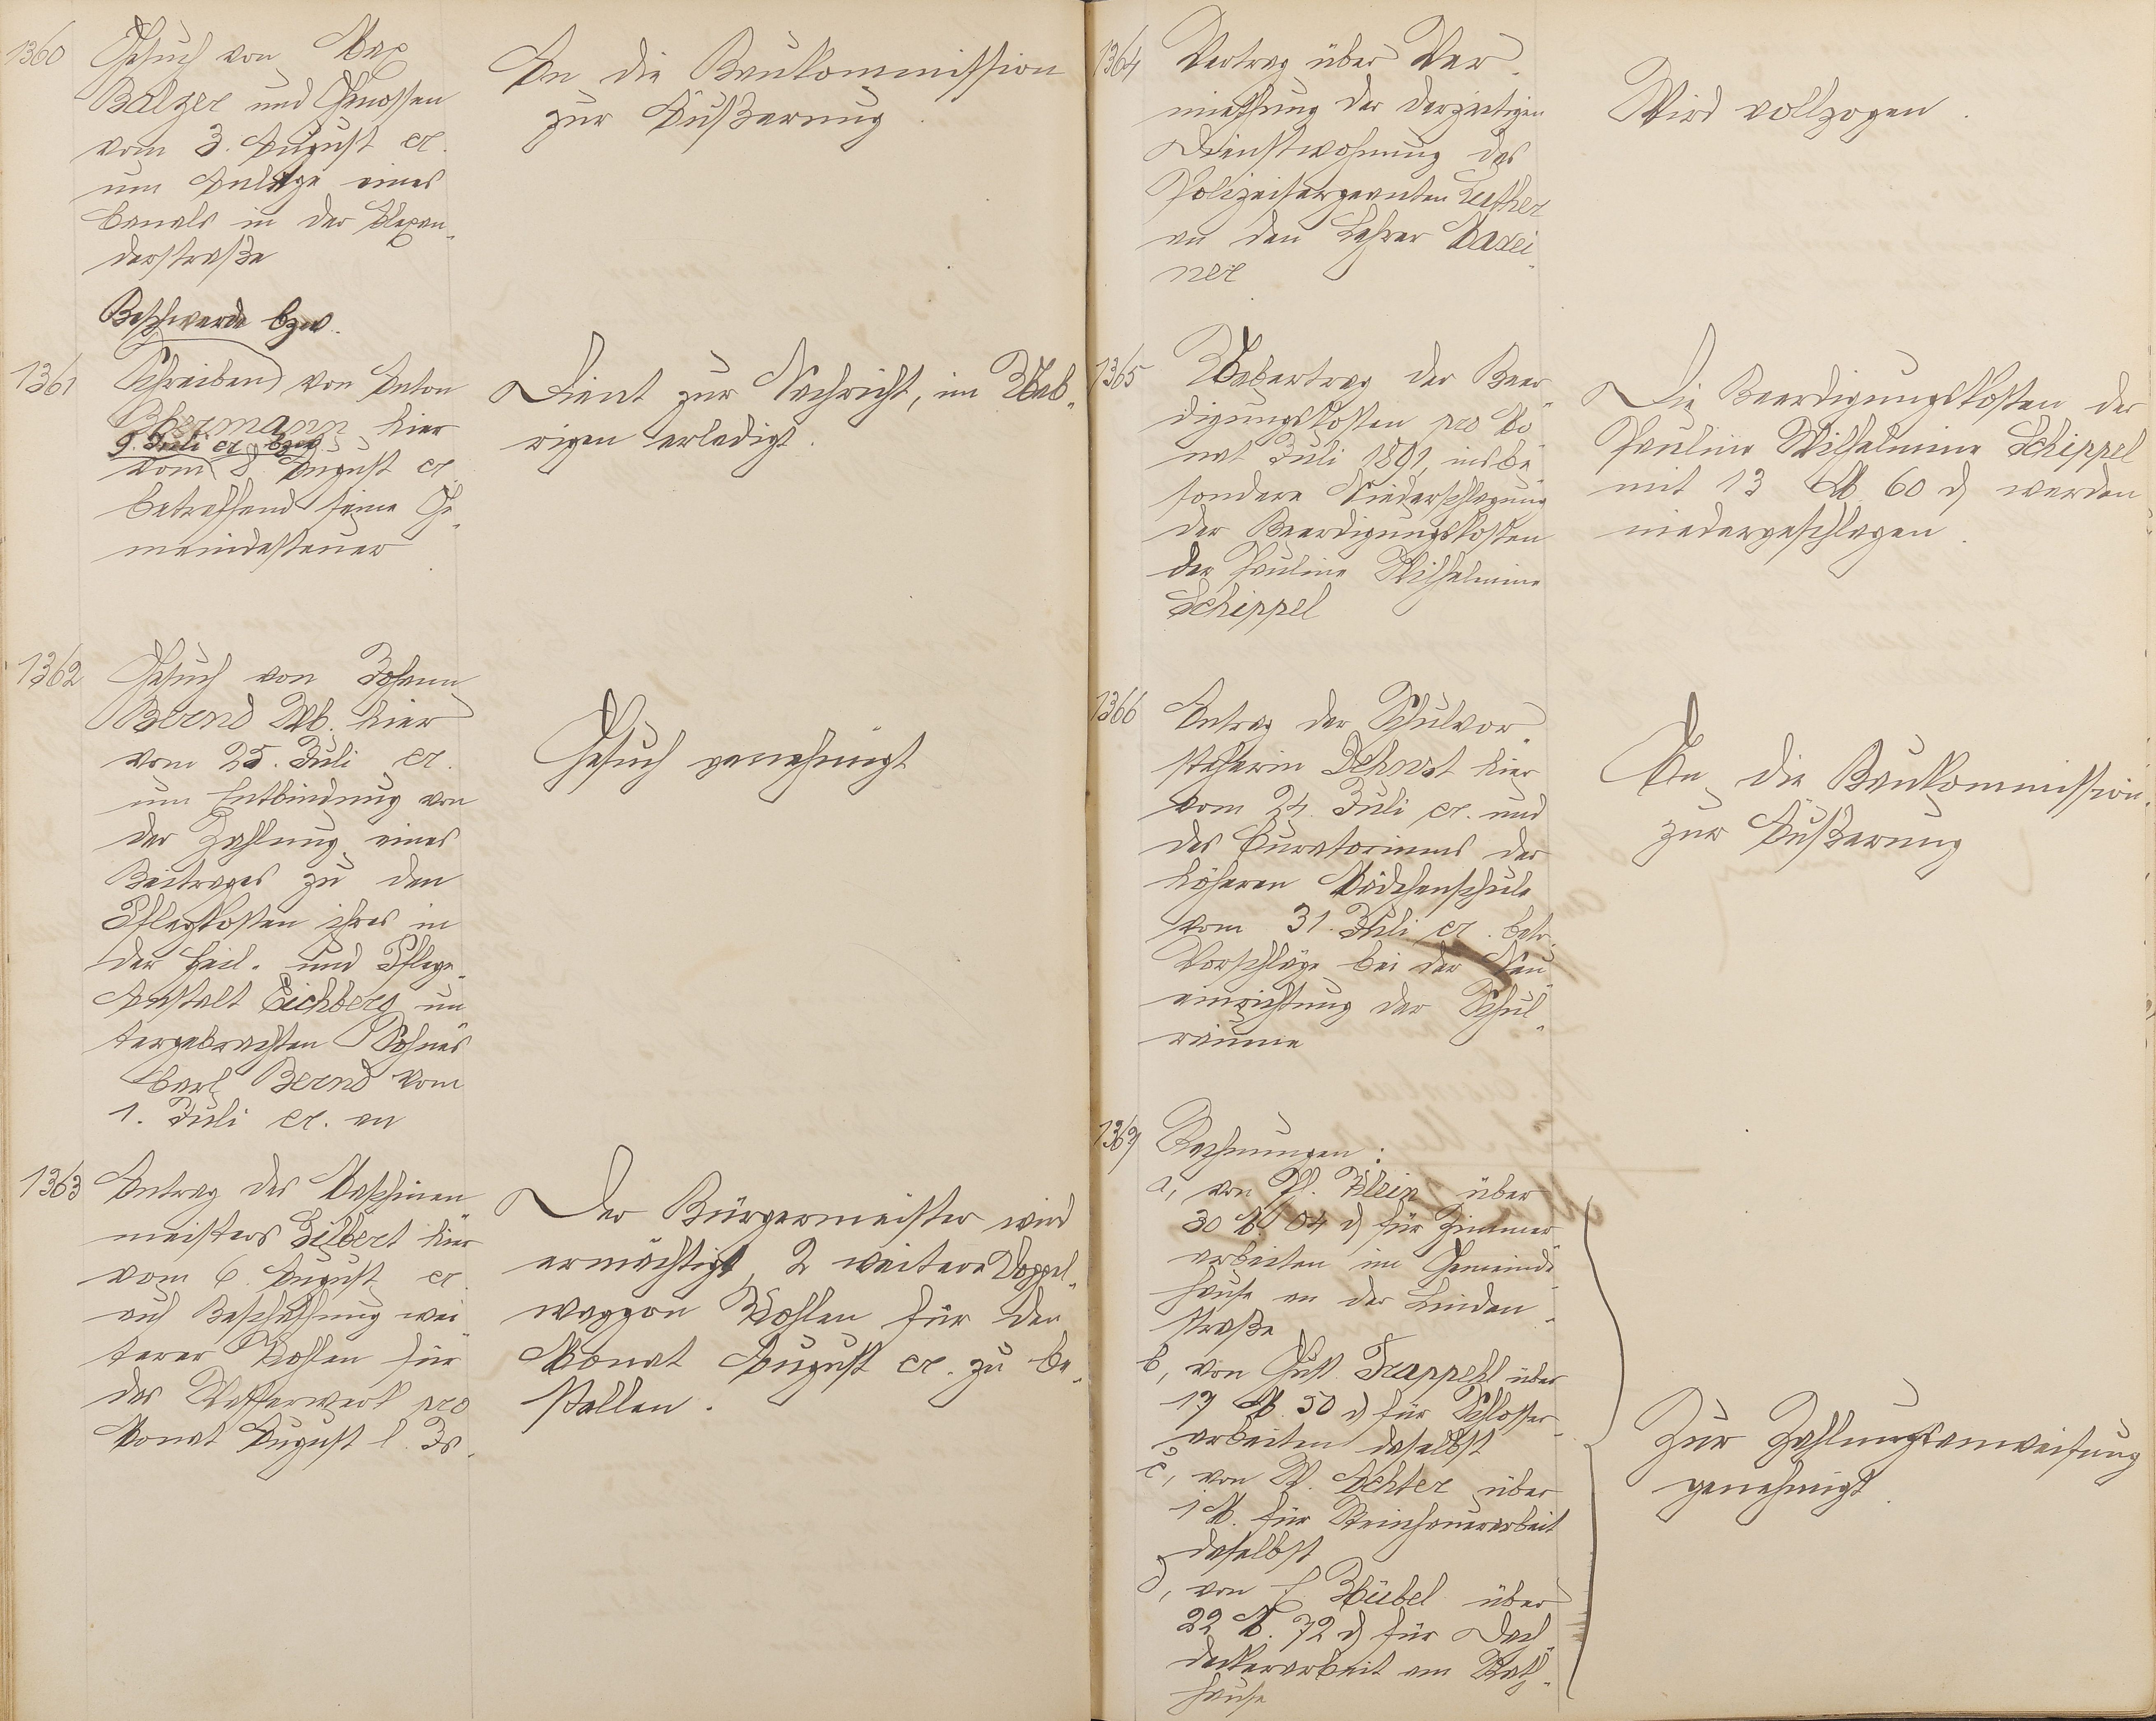 1360
Gesuch von Max
Balzer und Genossen
vom 3. August cr.
um Anlage eines
Canals in der Alexan-
derstraße
An die Baukommission
zur Äußerung.
Beschwerde bzw.
1361
Schreiben von Anton
hier
9. Juli cr. bzw.
vom 8. August cr.
betreffend seine Ge-
meindesteuer
Dient zur Nachricht, im Ueb-
rigen erledigt.
1362
Gesuch von Johann
Bernd Wb. hier
vom 25. Juli cr.
um Entbindung von
der Zahlung eines
Beitrages zu den
Pflegkosten ihres in
der Heil- und Pflege-
Anstalt Eichberg un-
tergebrachten Sohnes
Carl Bernd vom
1. Juli cr. an
Gesuch genehmigt
1363
Antrag des Maschinen-
meisters Hilbert hier
vom 6. August cr.
auf Beschaffung wei-
terer Kohlen für
das Wasserwerk pro
Monat August l. Js.
Der Bürgermeister wird
ermächtigt, 2 weitere Doppel-
waggon Kohlen für den
Monat August cr. zu be-
stellen.
1364
Vertrag über Ver-
miethung der derzeitigen
Dienstwohnung des
Polizeisergeanten Luther
an den Lehrer Maxei-
ner
Wird vollzogen.
1365
Uebertrag der Beer-
digungskosten pro Mo-
nat Juli 1891, insbe-
sondere Niederschlagung
der Beerdigungskosten
der Pauline Wilhelmine
Schippel
Die Beerdigungskosten der
Pauline Wilhelmine Schippel
mit 13 M. 60 d werden
niedergeschlagen.
1366
Antrag der Schulvor-
steherin hier
vom 24. Juli cr. und
des Curatoriums der
höheren Mädchenschule
vom 31. Juli cr. betr.
Vorschläge bei der Neu-
einrichtung der Schul-
räume
An die Baukommission
zur Äußerung
1367
Rechnungen:
a, von Ph. Klein über
30 M. 04 d für Zimmer-
arbeiten im Gemeinde-
hause an der Linden-
straße
b, von Gust. Trappehl über
17 M. 50 d für Schlosser-
arbeiten daselbst
c, von W. Achter über
1 M. für Steinhauerarbeit
daselbst
d, von F. Kübel über
22 M. 72 d für Dach-
deckerarbeit am Rath-
hause
Zur Zahlungsanweisung
genehmigt.